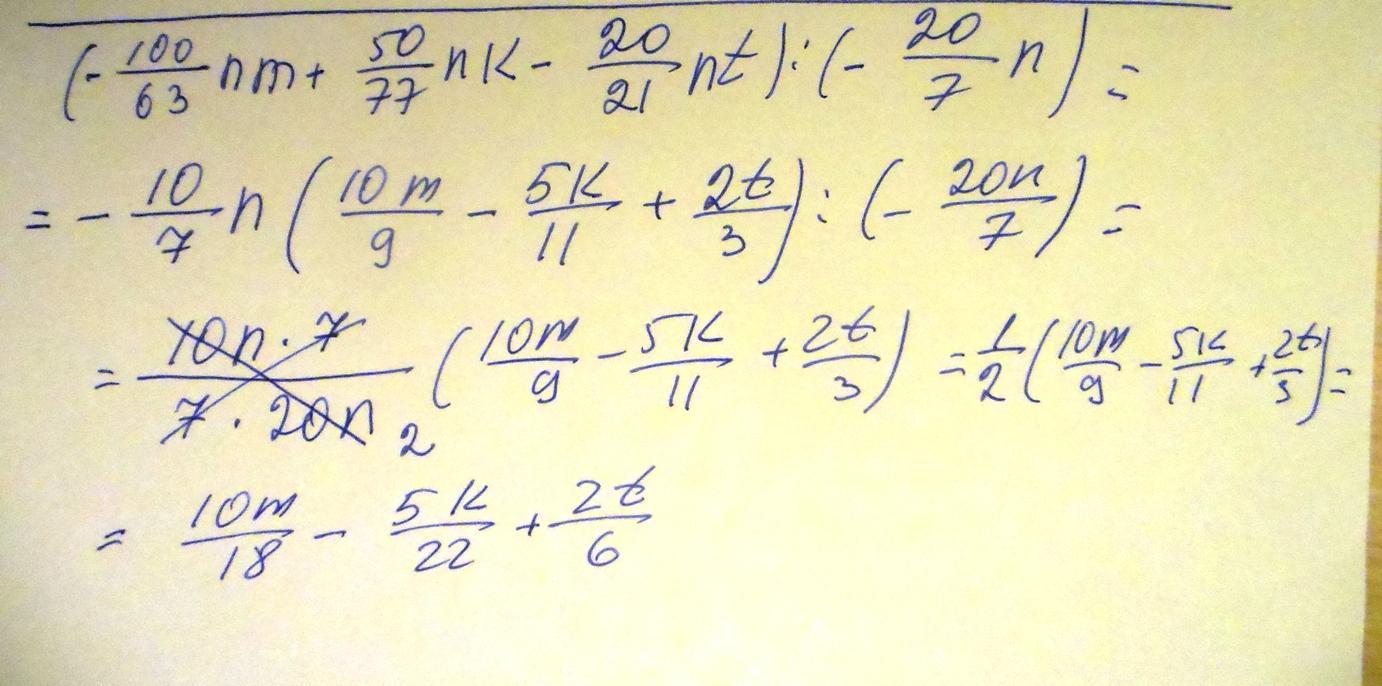 (- 100/63 nm + 50/77 nk - 20/21 nt) : (- 20/7 n) =
= - 10/7 n (10m/9 - 5k/11 + 2t/3) : (- 20n/7) =
= 10n · 7 / 7 · 20n 2 (10m/9 - 5k/11 + 2t/3) = 1/2 (10m/9 - 5k/11 + 2t/3) =
= 10m/18 - 5k/22 + 2t/6